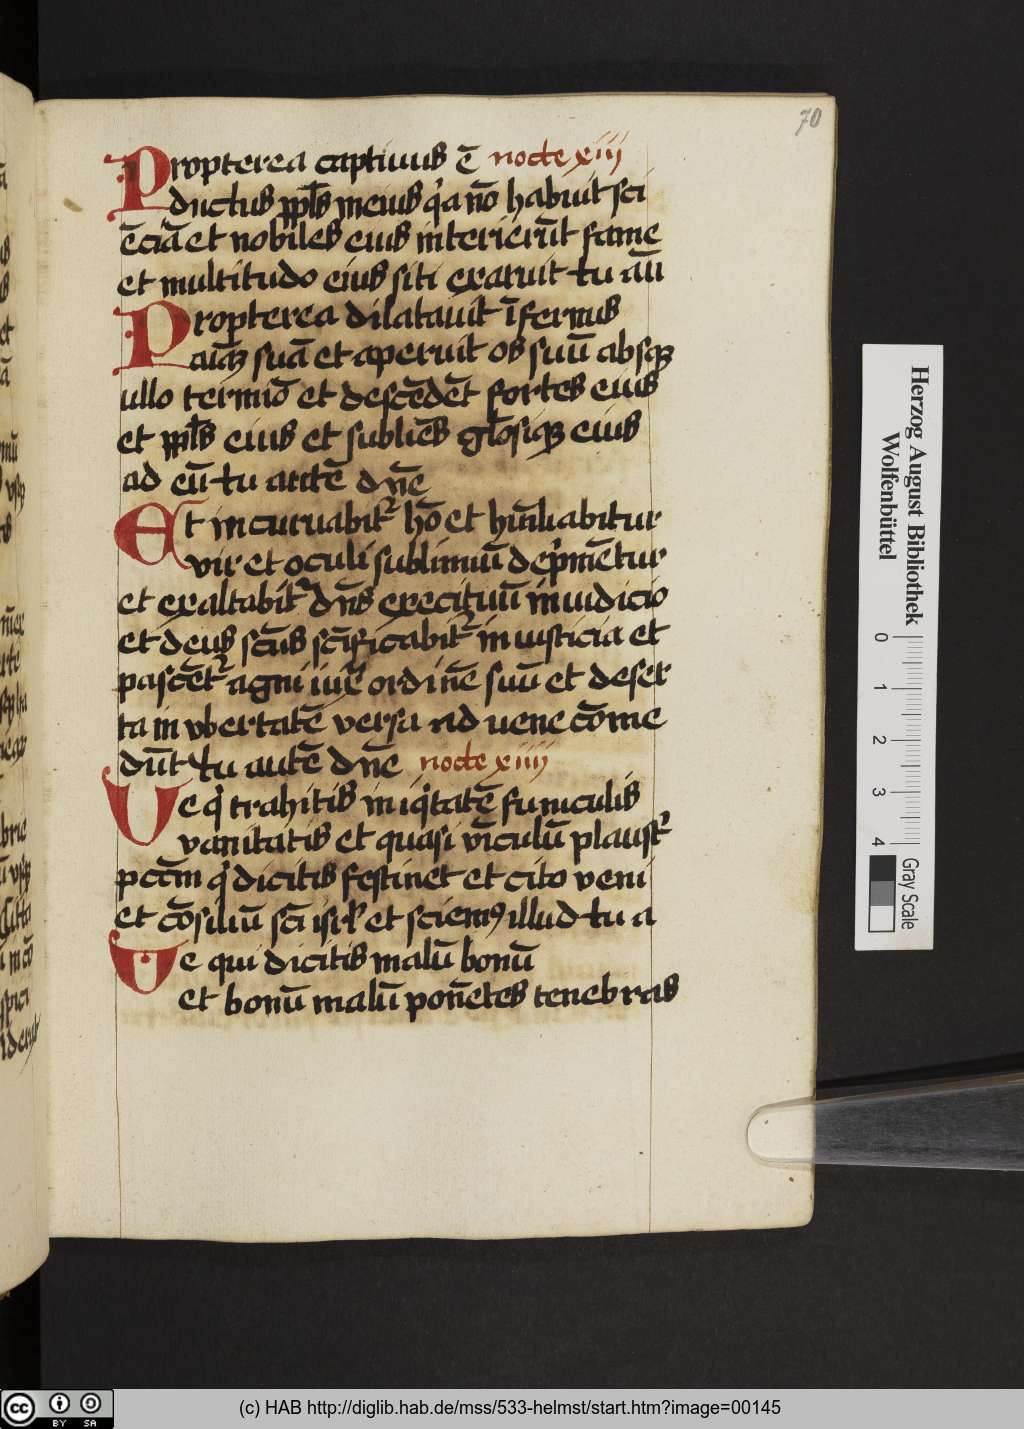 70
Propterea captiuus ē nocte xiij
ductus ppl̄s meus q'a nō habuit sci
ēciā et nobiles eius interierūt fame
et multitudo eius siti exaruit tu aū
Propterea dilatauit īfernus
aīaꝫ suā et aperuit os suū absqꝫ
ullo termīo et descēdēt fortes eius
et ppl̄s eius et sublīes gl̄osiqꝫ eius
ad eū tu autē dn̄e
Et incuruabit' hō et hūiliabitur
vir et oculi sublimiū dep'mētur
et exaltabit' dn̄s exercituū in iudicio
et deus scūs scīficabit' in iusticia et
pascēt' agni iux̄ ordinē suū et deser
ta in vbertatē versa aduene cōme
dūt tu autē dn̄e nocte xiiij
Ue q' trahitis iniq'tatē funiculis
vanitatis et quasi vīculū plaust'
pctīm q' dicitis festinet et cito veni
et cōsiliū sci isrl' et sciemꝰ illud tu a
Ue qui dicitis malū bonū
et bonū malū ponētes tenebras
Herzog August Bibliothek
Wolfenbüttel
0 1 2 3 4
Gray Scale
cc BY SA
(c) HAB http://diglib.hab.de/mss/533-helmst/start.htm?image=00145